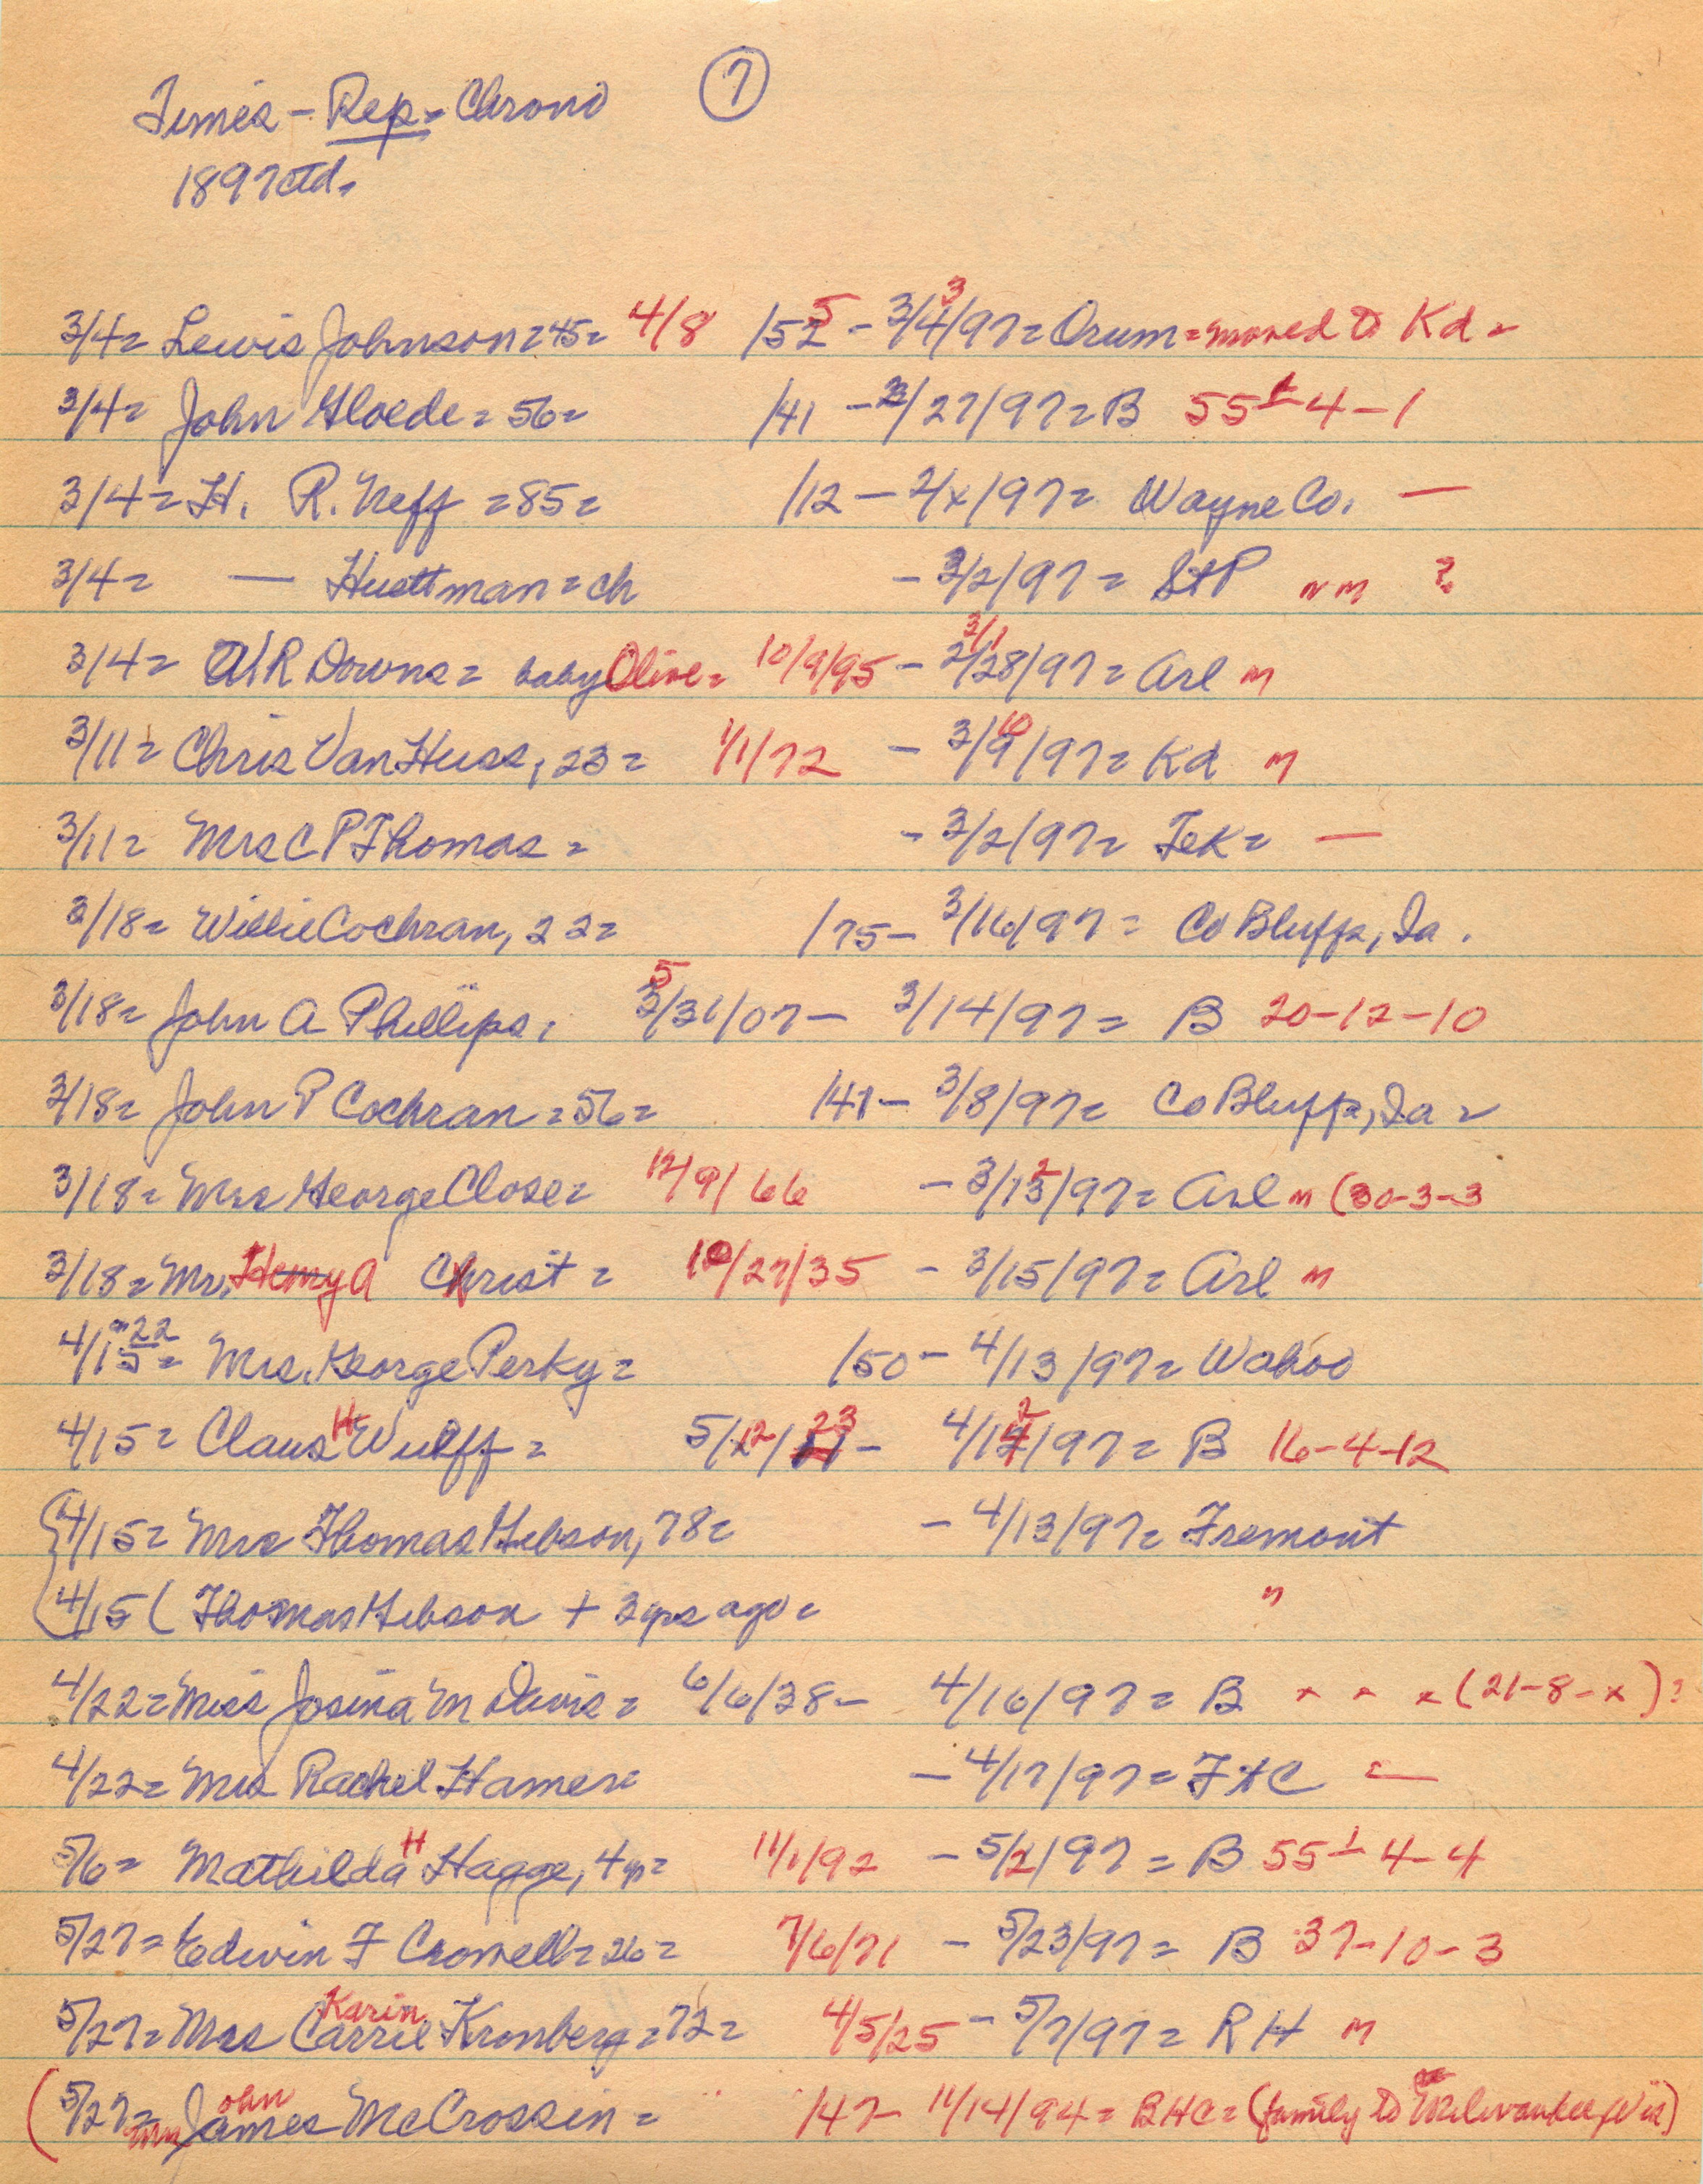 Times - Rep - Chrono ⑦
1897 ctd.
3/4 = Lewis Johnson = 45 = 4/8 /52 5 - 3/4/97 3 = Orum = moved to Kd =
3/4 = John Gloede = 56 = /41 - 2/27/97 = B 55 ½ - 4 - 1
3/4 = H. R. Neff = 85 = /12 - 2/x/97 = Wayne Co. —
3/4 = — Huettman = ch - 3/2/97 = StP nm ?
3/4 = W R Downs = baby Olive = 10/9/95 - 2/28/97 3/1 = Arl m
3/11 = Chris Van Huss, 23 = 1/1/72 - 3/9/97 10 = Kd m
3/11 = Mrs C P Thomas = - 3/2/97 = Tek = —
3/18 = Willie Cochran, 22 = /75 - 3/16/97 = Co Bluffs, Ia.
3/18 = John A Phillips, 3/31/07 5 - 3/14/97 = B 20-12-10
3/18 = John P Cochran = 56 = /41 - 3/8/97 = Co Bluffs, Ia =
3/18 = Mrs George Close = 12/9/66 - 3/13/97 2 = Arl m (30-3-3
3/18 = Mr. Henry A Christ = 10/27/35 - 3/15/97 = Arl m
4/15 22 = Mrs. George Perky = /50 - 4/13/97 = Wahoo
4/15 = Claus H Wulff = 5/12/23 - 4/12/97 = B 16-4-12
4/15 = Mrs Thomas Gibson, 78 = - 4/13/97 = Fremont
4/15 ( Thomas Gibson + 3 yrs ago = "
4/22 = Miss Josina M Davis = 6/6/38 - 4/16/97 = B x x x (21-8-x)?
4/22 = Mrs Rachel Hamer = - 4/17/97 = FtC —
5/6 = Mathilda H Hagge, 4 yr = 11/1/92 - 5/2/97 = B 55 ½ - 4 - 4
5/27 = Edwin F Crowell = 26 = 7/6/71 - 5/23/97 = B 37-10-3
5/27 = Mrs Carrie Karin Kronberg = 72 = 4/5/25 - 5/7/97 = RH m
( 5/27 = James John McCrossin = /47 - 11/14/94 = BHC = (family to Milwaukee, Wis)